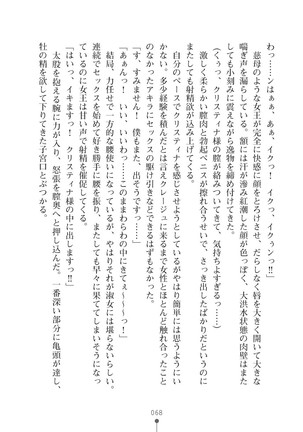 わっ……ンはぁぁ、あぁ、イクっ！　イクぅンっ‼」
慈母のような女王が完全に快感に顔をとろけさせ、だらしなく唇を大きく開いて大きな
喘ぎ声を漏らしている。額には汗が滲み紅潮した顔が色っぽく、大洪水状態の肉壁はまる
で小刻みに震えながら逸物を締め付けてきた。
（くぅっ、クリスティナ様の膣が絡みついてきて、気持ちよすぎるっ……）
激しく柔らかな膣肉と勃起ペニスが擦れ合うせいで、さっき出したばかりだというのに
もたしても射精欲が込み上げてくる。
自分のペースでクリスティナを感じさせようとしても、やはり簡単には思うようにい
かない。多少経験を積んだとは言えクレージュに来るまで女性とほとんど触れ合ったこと
のなかったアキラにセックスの駆け引きなどできるはずもなかった。
「す、すみませんっ！　僕もまた、出そうですっ……」
「あぁんっ！　いい、いいわっ……このままわらわの中にきてぇ〜〜〜っ！」
結局、力任せで一方的な腰使いになっているが、やはりそれが淑女には堪らないらしい。
連続でセックスを始めて好き勝手に腰を振り、またしても早々に果ててしまいそうになっ
ているのに女王は甘い声で射精を催促してくる。
「い、イキますっ！　クリスティーナ様の中に出しますっ！」
太股を抱える腕に力が入り、怒張を膣奥へと押し込んだ。一番深い部分に亀頭が達し、
牡の精を欲して下りてきた子宮口とぶつかる。
068